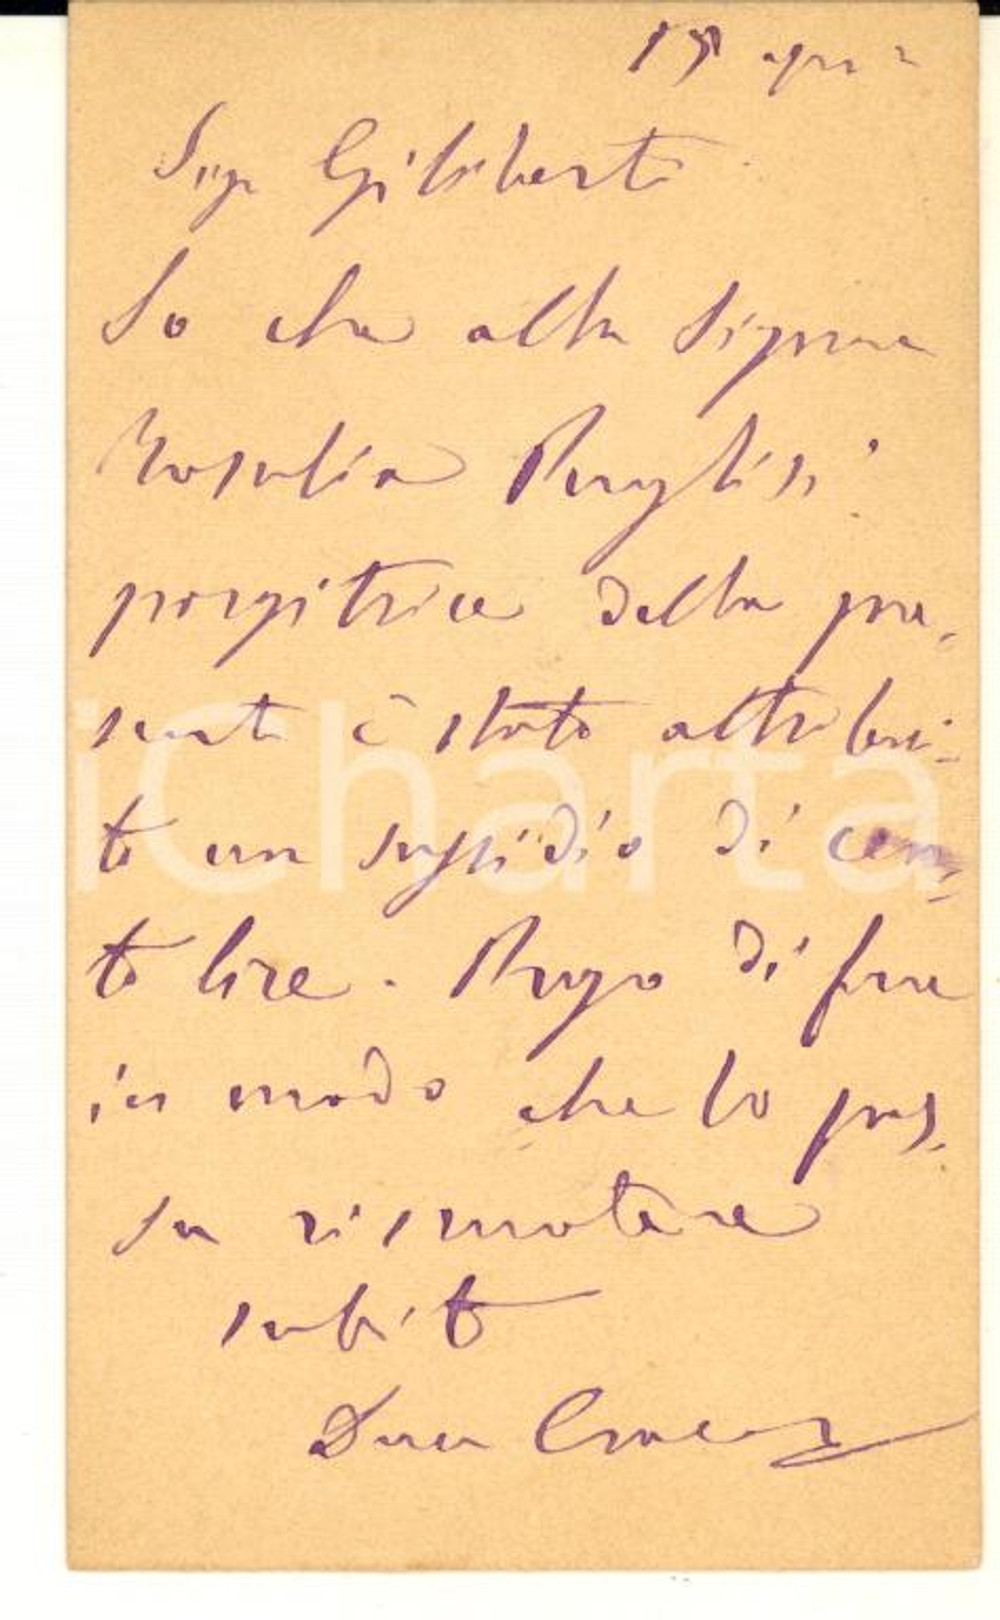 aprile
Sigr Giliberti
So che alla Signora
Rosalia Puglisi
porgitrice della pre-
sente è stato attribui-
to un sussidio di cen-
to lire. Prego di fare
in modo che lo pos-
sa riscuotere
subito
Duca
iCharta